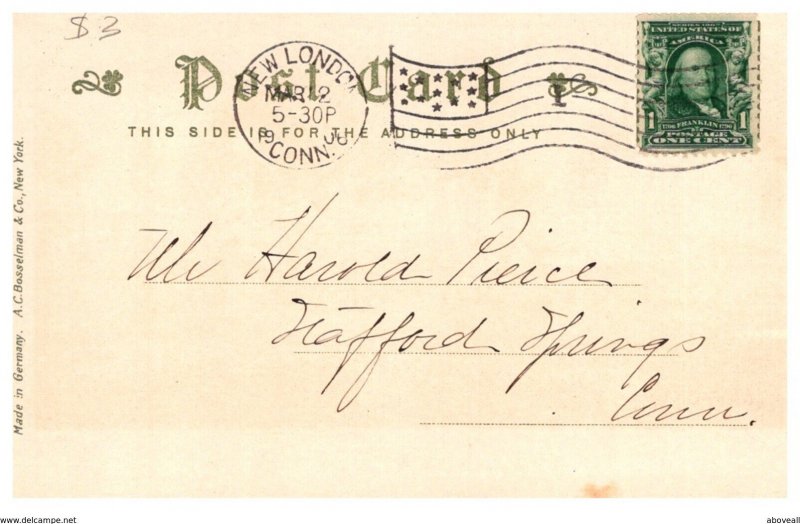 $3
Post Card
NEW LONDON
MAR 12
5-30P
1906
CONN.
SERIES 1902
UNITED STATES OF
AMERICA
1706 FRANKLIN 1790
1 POSTAGE 1
ONE CENT
THIS SIDE IS FOR THE ADDRESS ONLY
Made in Germany. A.C. Bosselman & Co., New York.
Mr Harold Pierce
Stafford Springs
Conn.
www.delcampe.net
aboveall